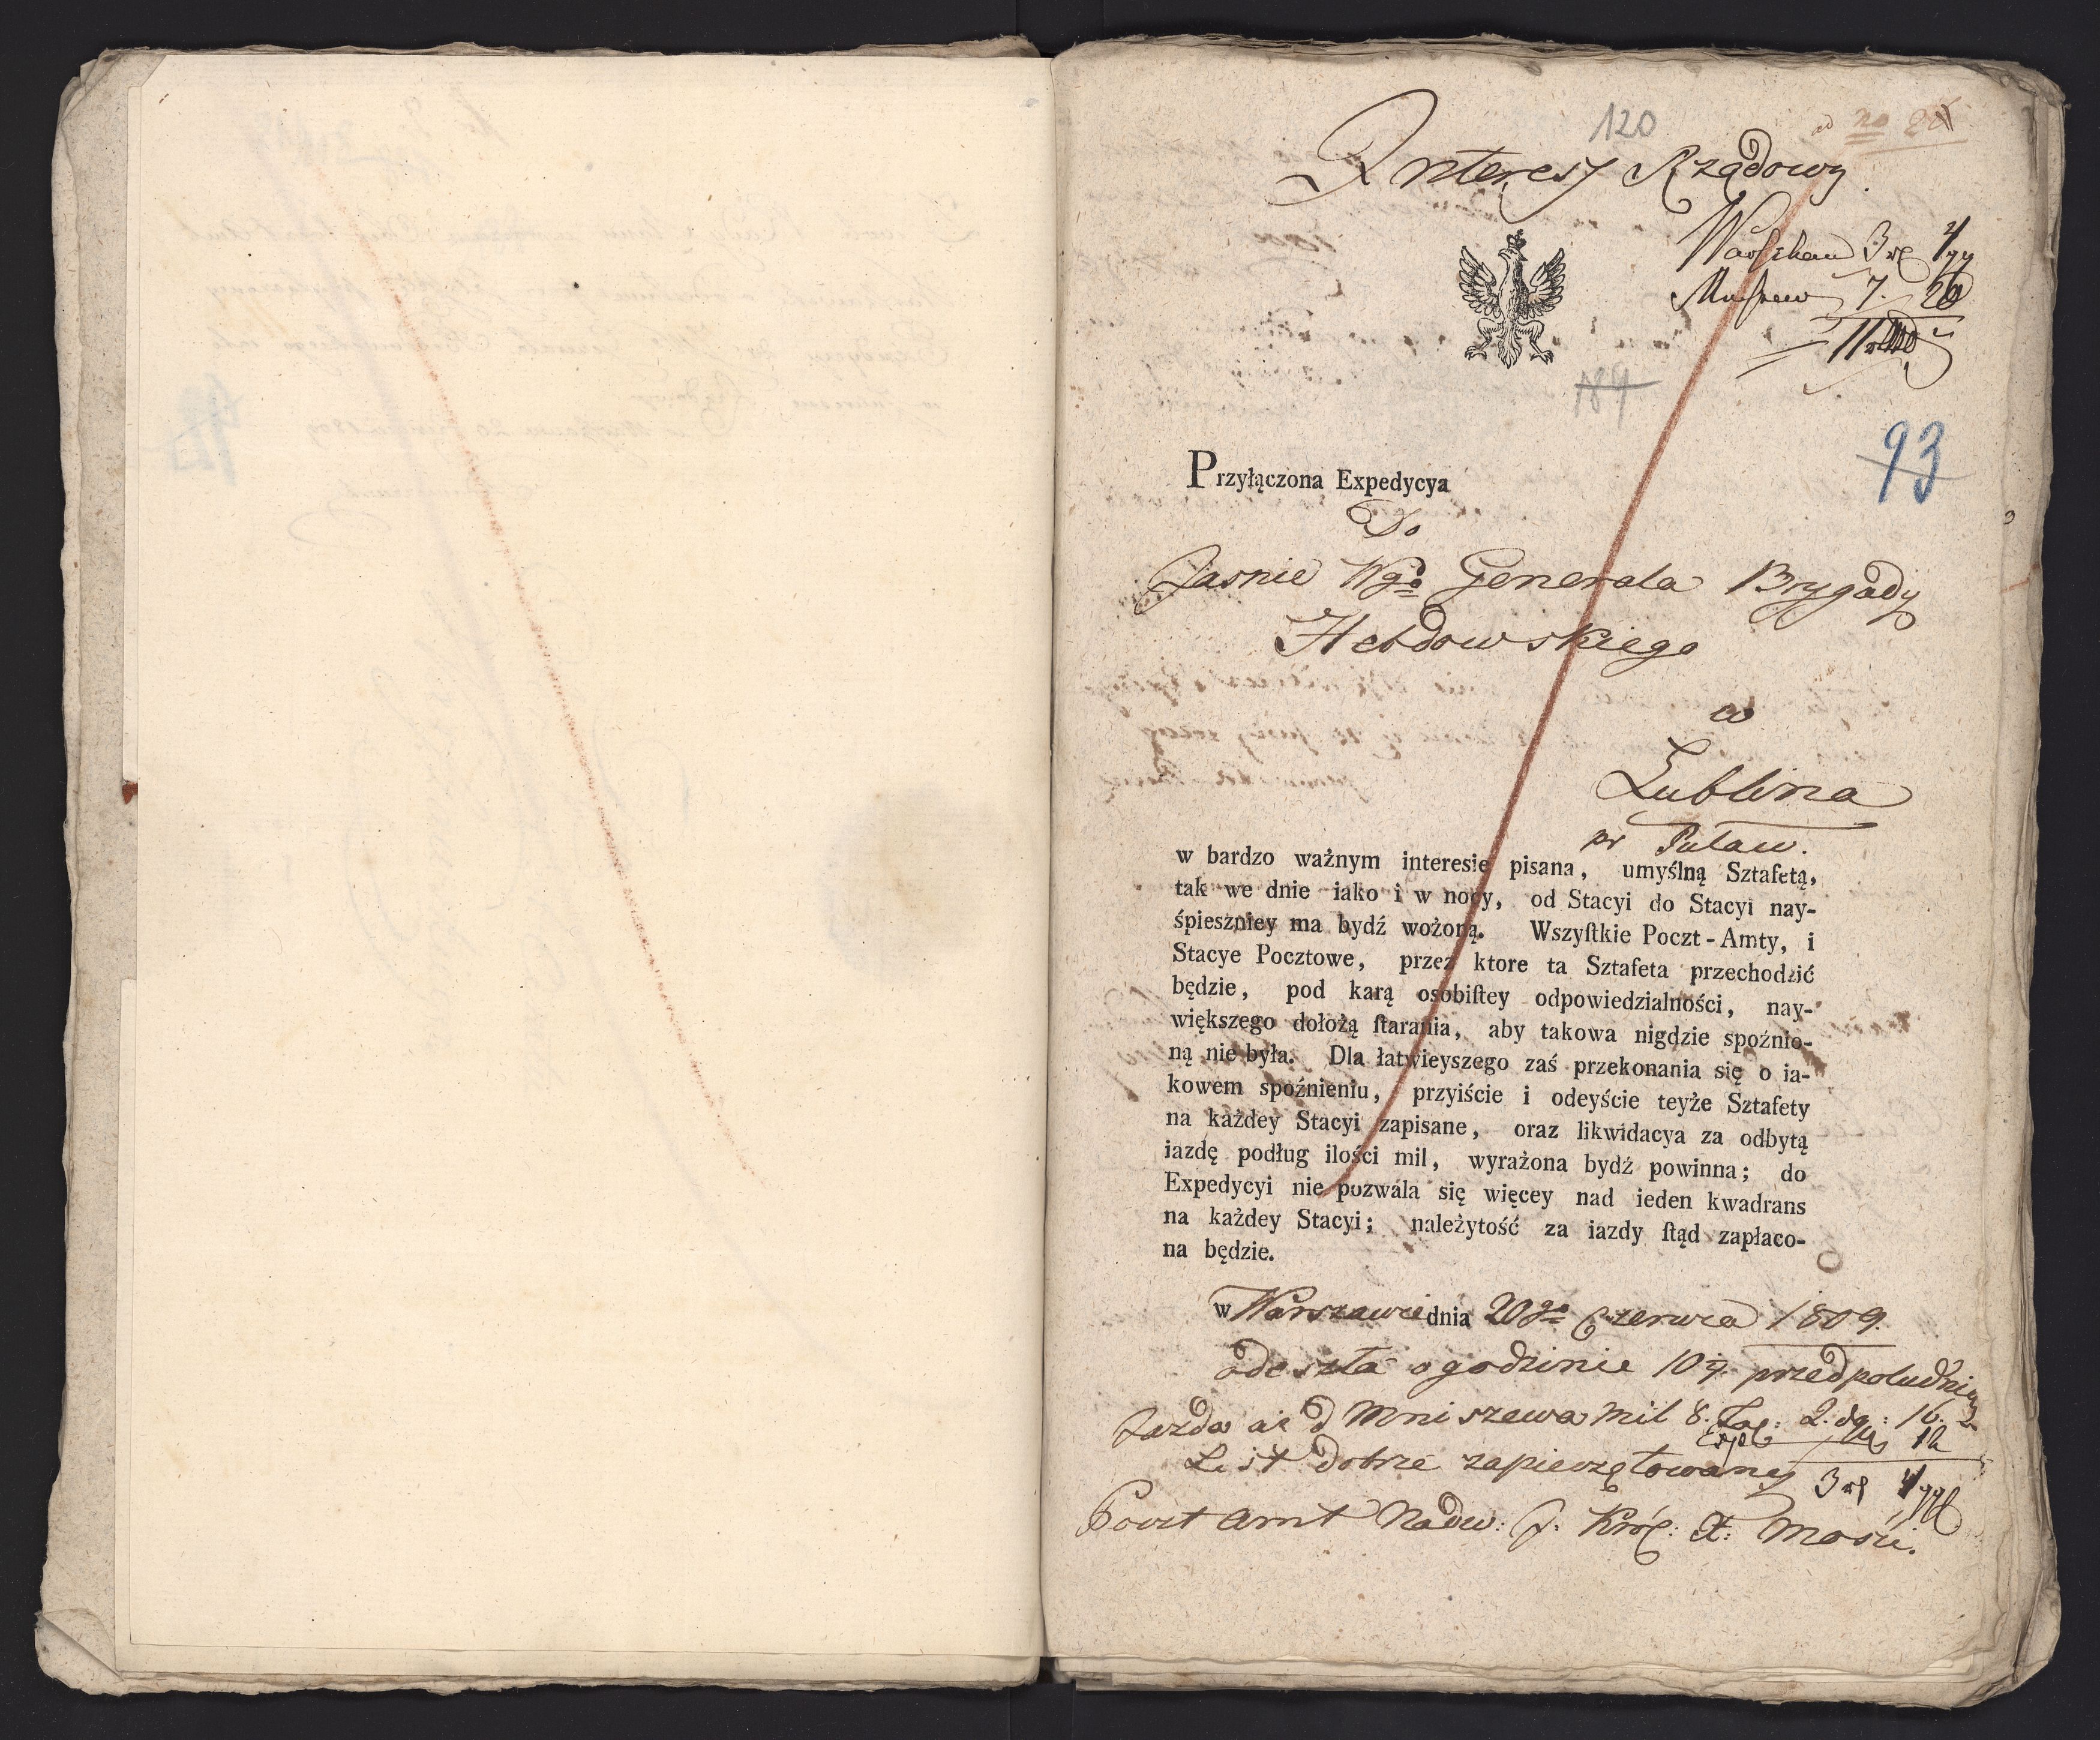 120
ad no
Interess Rządowy
Warschau 3 4
7. 20
11
184
93
Przyłączona Expedycya
Do
Jasnie Wgo Generała Brygady
Hebdowskiego
w
Lublina
pr Puław.
w bardzo ważnym interesie pisana, umyślną Sztafetą,
tak we dnie iako i w nocy, od Stacyi do Stacyi nay-
śpieszniey ma bydź wożoną. Wszyſtkie Poczt-Amty, i
Stacye Pocztowe, przez ktore ta Sztafeta przechodzić
będzie, pod karą osobiſtey odpowiedzialności, nay-
większego dołożą ſtarania, aby takowa nigdzie spoźnio-
ną nie była. Dla łatwieyszego zaś przekonania się o ia-
kowem spoźnieniu, przyiście i odeyście teyże Sztafety
na każdey Stacyi zapisane, oraz likwidacya za odbytą
iazdę podług ilości mil, wyrażona bydź powinna; do
Expedycyi nie pozwala się więcey nad ieden kwadrans
na każdey Stacyi; należytość za iazdy ſtąd zapłaco-
na będzie.
w Warszawie dnia 20go Czerwca 1809.
odeszła o godzinie 10 przed południem
Jazda aż d Mniszewa mil 8. 2. 16.
12
List dobrze zapieczętowany 3 4
Poczt Amt Nadw: J. Król: X: Mości.